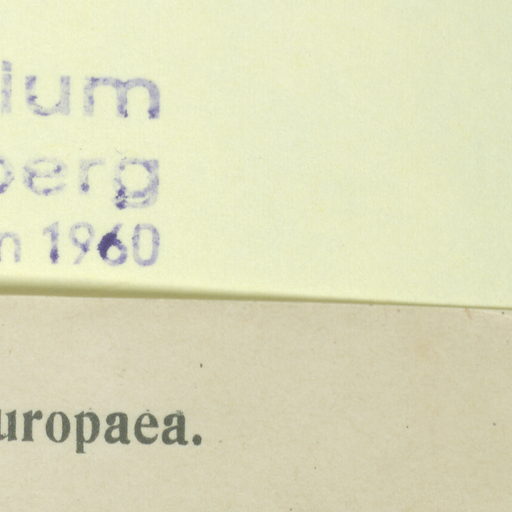 lum
berg
n 1960
uropaea.